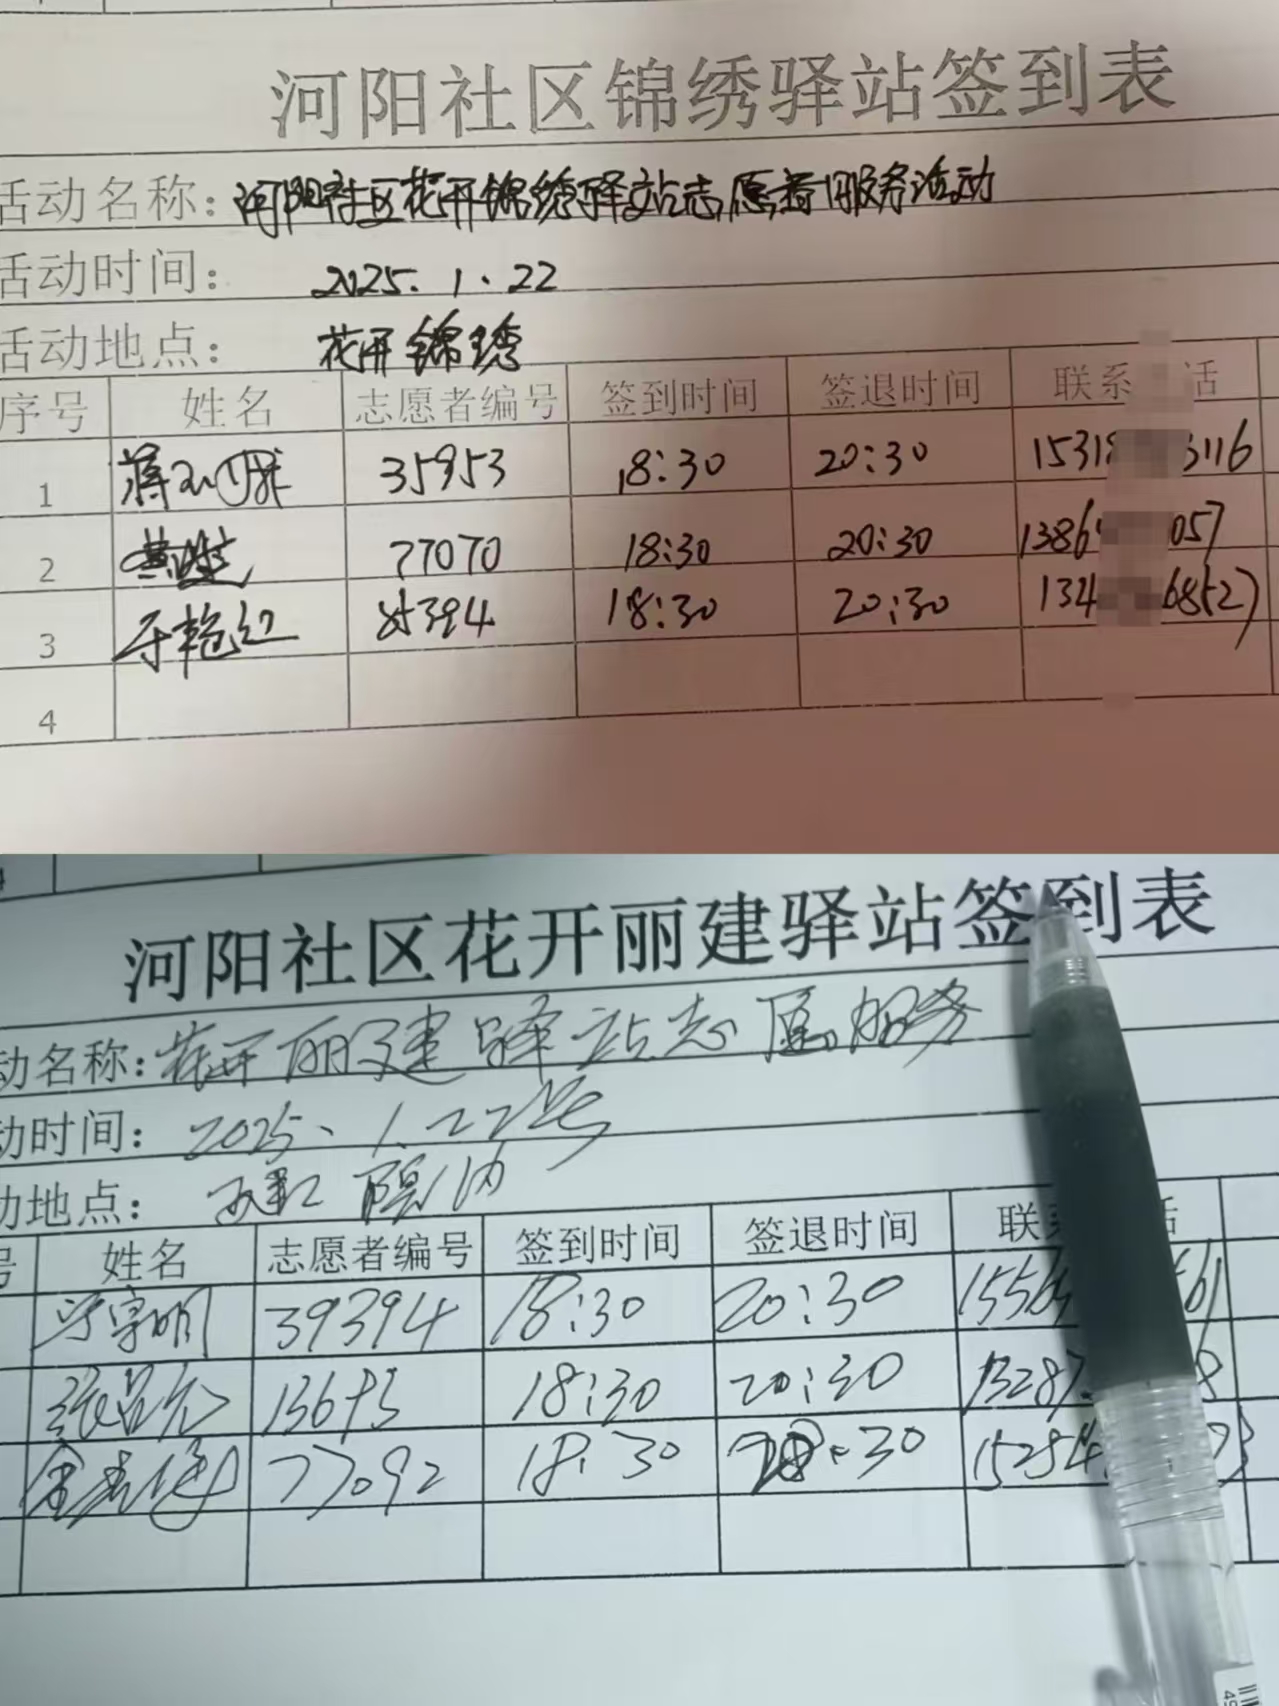 河阳社区锦绣驿站签到表
活动名称：河阳社区花开锦绣驿站志愿者服务活动
活动时间：2025.1.22
活动地点：花开锦绣
序号 姓名 志愿者编号 签到时间 签退时间 联系 话
1 35953 18:30 20:30 1531 3116
2 77070 18:30 20:30 1386 057
3 于艳红 85394 18:30 20:30 134 6852
4
河阳社区花开丽建驿站签到表
动名称：花开丽建驿站志愿服务
动时间：2025、1.22号
动地点：院内
号 姓名 志愿者编号 签到时间 签退时间 联 话
39394 18:30 20:30 155 61
18:30 20:30 13287 8
77092 18:30 20:30 15254